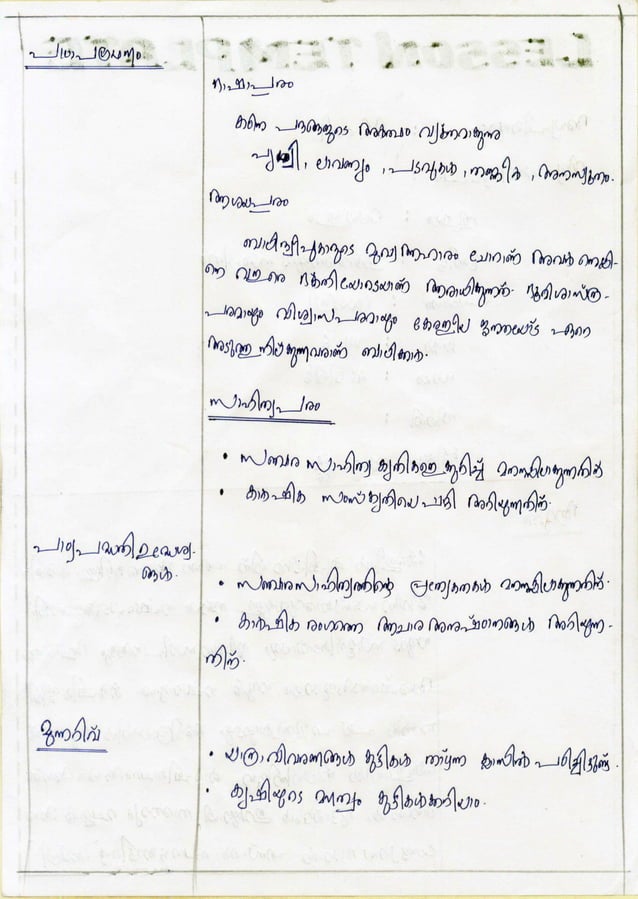 പാഠാപഗ്രഥനം
ഭാഷാപരം
കഠിന പദങ്ങളുടെ അർത്ഥം വ്യക്തമാക്കുന്നു
പൃഥ്വി, ലാവണ്യം, പടവുകൾ, നർത്തകി, അനസ്യൂതം.
ആശയപരം
ബാലിദ്വീപുകാരുടെ മുഖ്യ ആഹാരം ചോറാണ് അവർ നെല്ലി-
നെ വളരെ ഭക്തിയോടെയാണ് ആരാധിക്കുന്നത്. ഭൂമിശാസ്ത്ര-
പരമായും വിശ്വാസപരമായും കേരളീയ ജനതയോട് ഏറെ
അടുത്തു നില്ക്കുന്നവരാണ് ബാലിക്കാർ.
സാഹിത്യപരം
• സഞ്ചാര സാഹിത്യ കൃതികളെക്കുറിച്ച് മനസ്സിലാക്കുന്നതിന്
• കാർഷിക സംസ്കൃതിയെ പറ്റി അറിയുന്നതിന്.
പാഠ്യപദ്ധതി ഉദ്ദേശ്യ-
ങ്ങൾ.
• സഞ്ചാരസാഹിത്യത്തിന്റെ പ്രത്യേകതകൾ മനസ്സിലാക്കുന്നതിന്.
• കാർഷിക രംഗത്തെ ആചാര അനുഷ്ഠാനങ്ങൾ അറിയുന്ന-
തിന്.
മുന്നറിവ്
• യാത്രാ വിവരണങ്ങൾ കുട്ടികൾ താഴ്ന്ന ക്ലാസിൽ പഠിച്ചിട്ടുണ്ട്.
• കൃഷിയുടെ മഹത്വം കുട്ടികൾക്കറിയാം.